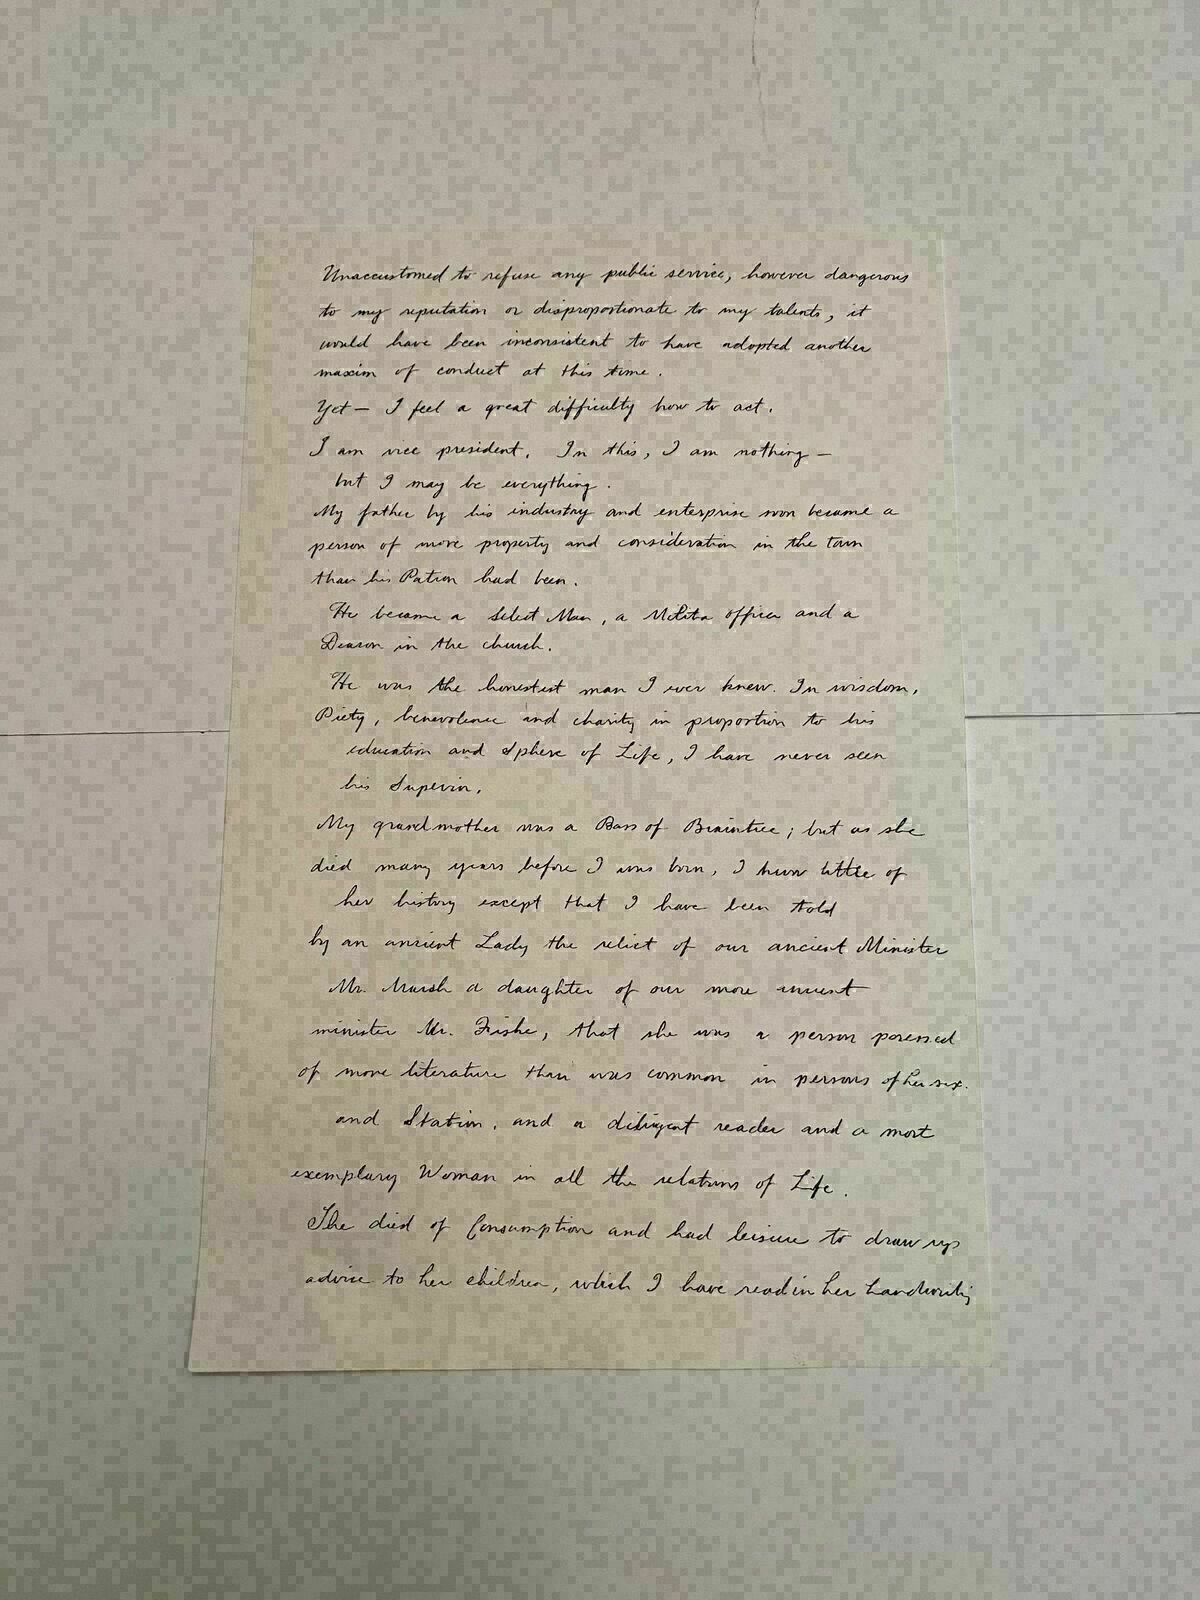 Unaccustomed to refuse any public service, however dangerous
to my reputation or disproportionate to my talents, it
would have been inconsistent to have adopted another
maxim of conduct at this time.
Yet — I feel a great difficulty how to act.
I am vice president. In this, I am nothing —
but I may be everything.
My father by his industry and enterprise soon became a
person of more property and consideration in the town
than his Patron had been.
He became a Select Man, a Militia officer and a
Deacon in the church.
He was the honestest man I ever knew. In wisdom,
Piety, benevolence and charity in proportion to his
education and Sphere of Life, I have never seen
his Superior.
My grandmother was a Bass of Braintree; but as she
died many years before I was born, I know little of
her history except that I have been told
by an ancient Lady the relict of our ancient Minister
Mr. Marsh a daughter of our more ancient
minister Mr. Fiske, that she was a person possessed
of more literature than was common in persons of her sex.
and Station, and a diligent reader and a most
exemplary Woman in all the relations of Life.
She died of Consumption and had leisure to draw up
advice to her children, which I have read in her handwriting